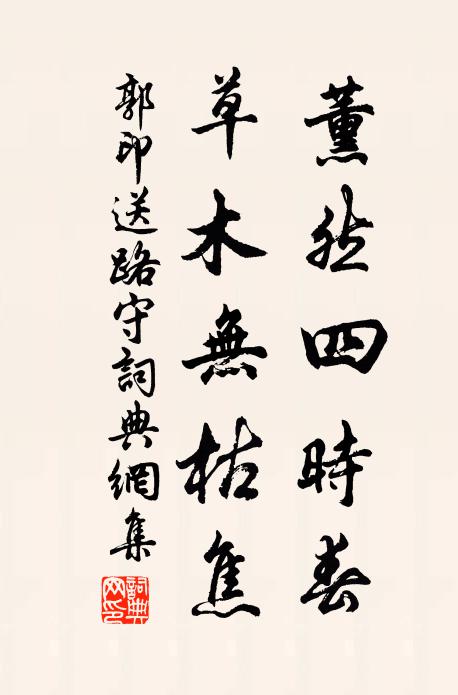 薰然四時春
草木無枯焦
郭印送路守詞典網集
詞典
网印